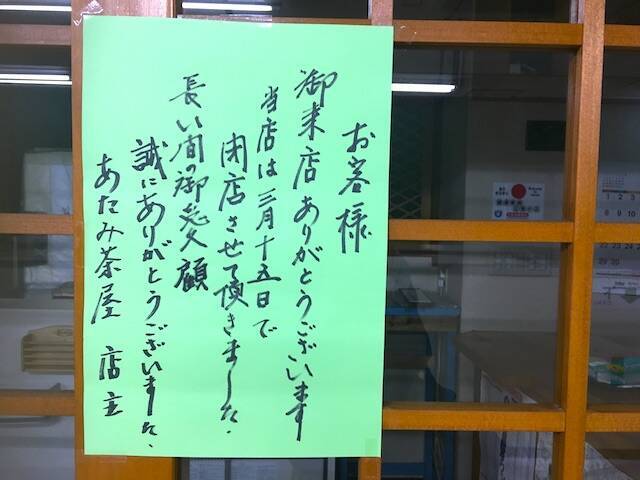 お客様
御来店ありがとうございます
当店は三月十五日で
閉店させて頂きました.
長い間の御愛顧
誠にありがとうございました、
あたみ茶屋 店主